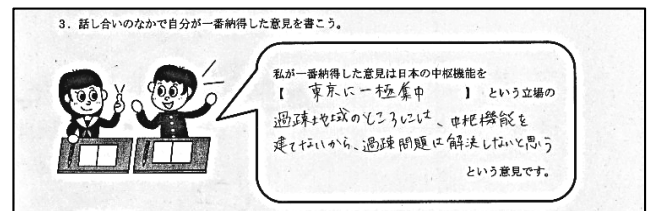 3．話し合いのなかで自分が一番納得した意見を書こう。
私が一番納得した意見は日本の中枢機能を
【 東京に一極集中 】 という立場の
過疎地域のところには、中枢機能を
建てないから、過疎問題は解決しないと思う
という意見です。